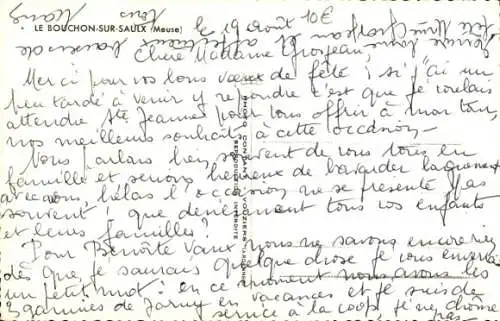 LE BOUCHON-SUR-SAULX (Meuse)
le 19 août 10€
Chère Madame Grosjean,
Merci pour vos bons vœux de fête ; si j'ai un
peu tardé à venir y répondre c'est que je voulais
attendre Ste Jeanne pour vous offrir à mon tour
nos meilleurs souhaits à cette occasion -
Nous parlons bien souvent de vous tous en
famille et serions heureux de bavarder
avec vous, hélas l'occasion ne se présente pas
souvent ! que deviennent tous vos enfants
et leurs familles ?
Pour Benoîte Vaux, nous ne savons encore rien
dès que je saurais quelque chose je vous enverrai
un petit mot : en ce moment nous avons les
3 gamines de Jarny en vacances et je suis de
service à la coop je ne chôme
pas -
PHOTO COMBIER
REPRODUCTION INTERDITE